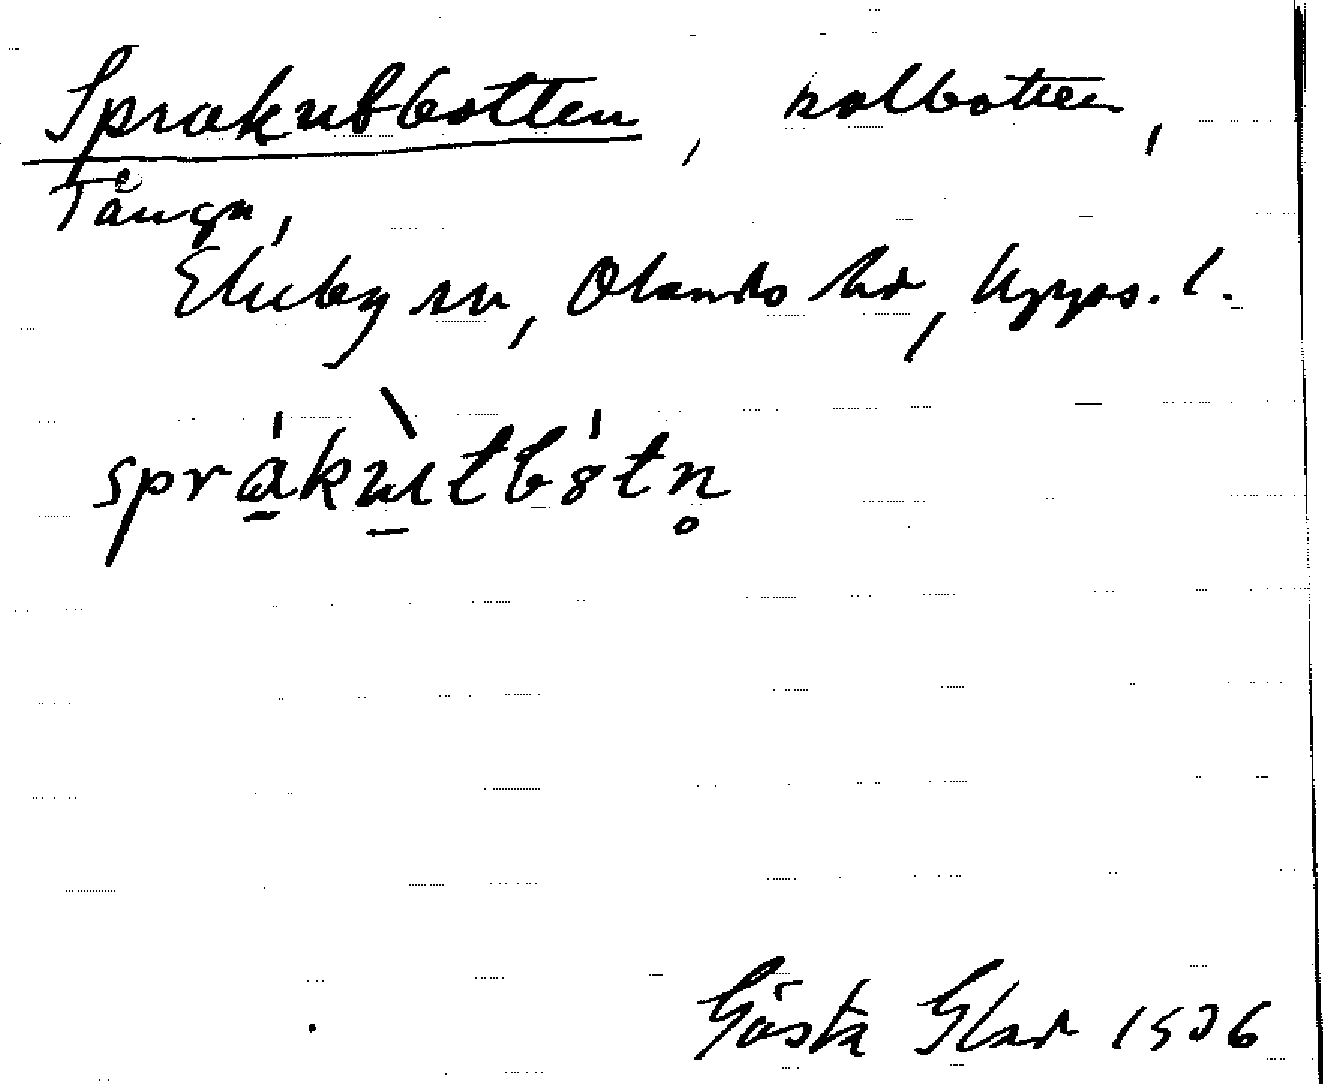 Sprakubbotten, kolbotten,
Tånga,
Ekeby sn, Olands hd, Upps. l.
språkùtbötn̥
Gösta Glad 1936